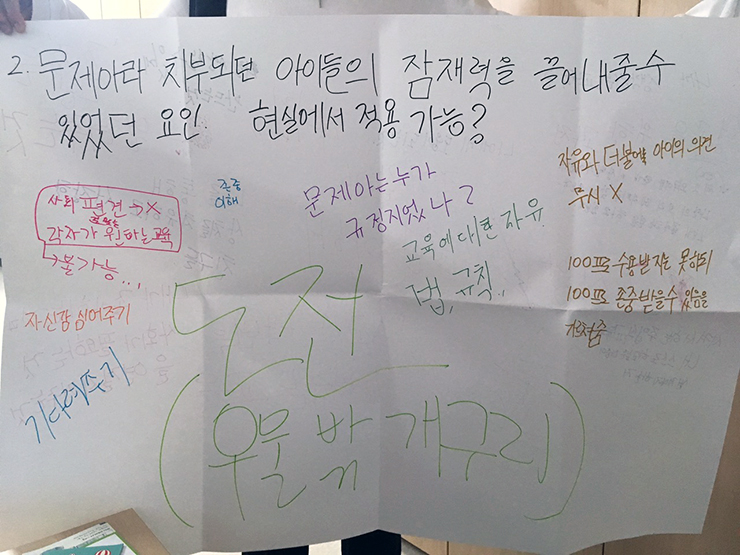 2. 문제아라 치부되던 아이들의 잠재력을 끌어내줄수
있었던 요인. 현실에서 적용 가능?
존중
이해
사회 편견 → X
각자가 원하는 교육
→ 불가능...
자신감 심어주기
기다려주기
문제아는 누가
규정지었나?
교육에 대한 자유.
법, 규칙,
자유와 더불어 아이의 의견
무시 X
100프로 수용받지는 못하되
100프로 존중 받을 수 있음을
도전
(우물 밖 개구리)